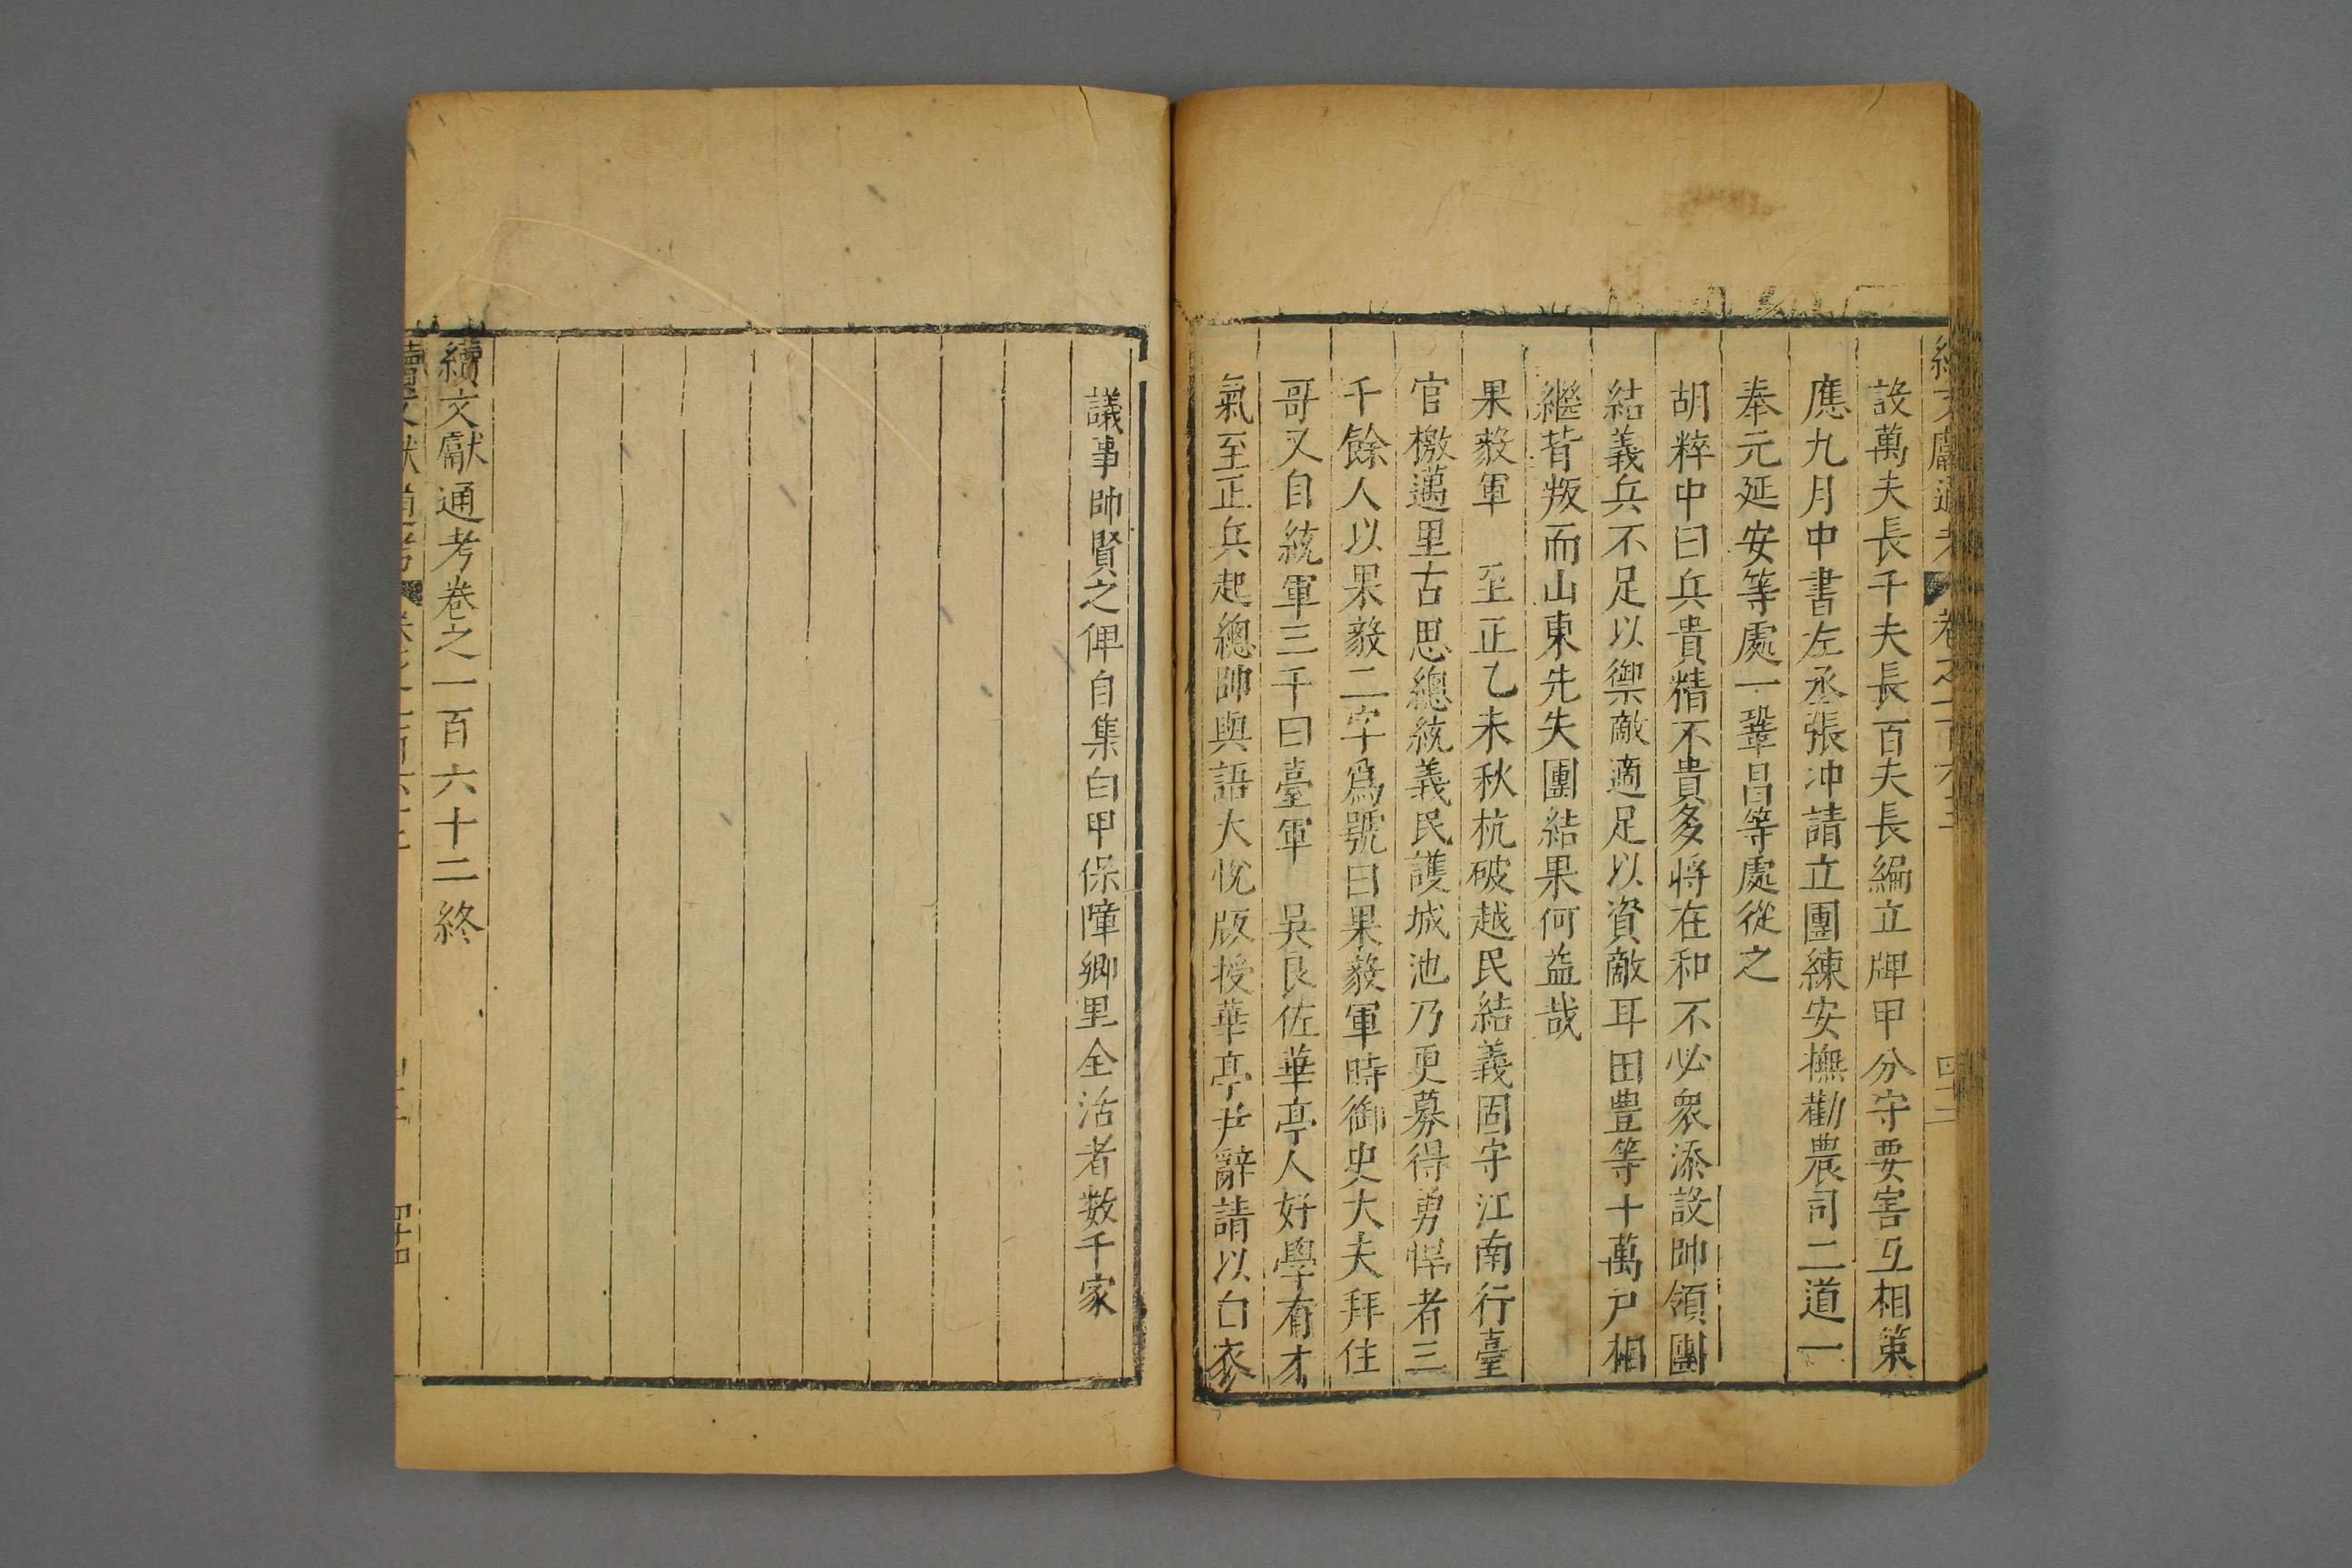 設萬夫長千夫長百夫長編立牌甲分守要害互相策
應九月中書左丞張冲請立團練安撫勸農司二道一
奉元延安等處一鞏昌等處從之
胡粹中曰兵貴精不貴多將在和不必衆添設帥領團
結義兵不足以禦敵適足以資敵耳田豊等十萬戸相
繼背叛而山東先失團結果何益哉
果毅軍　至正乙未秋杭破越民結義固守江南行臺
官檄邁里古思總統義民護城池乃更募得勇悍者三
千餘人以果毅二字爲號曰果毅軍時御史大夫拜住
哥又自統軍三千曰臺軍　吳良佐華亭人好學有才
氣至正兵起總帥與語大悅版授華亭尹辭請以白衣
議事帥賢之俾自集白甲保障鄉里全活者數千家
續文獻通考卷之一百六十二終